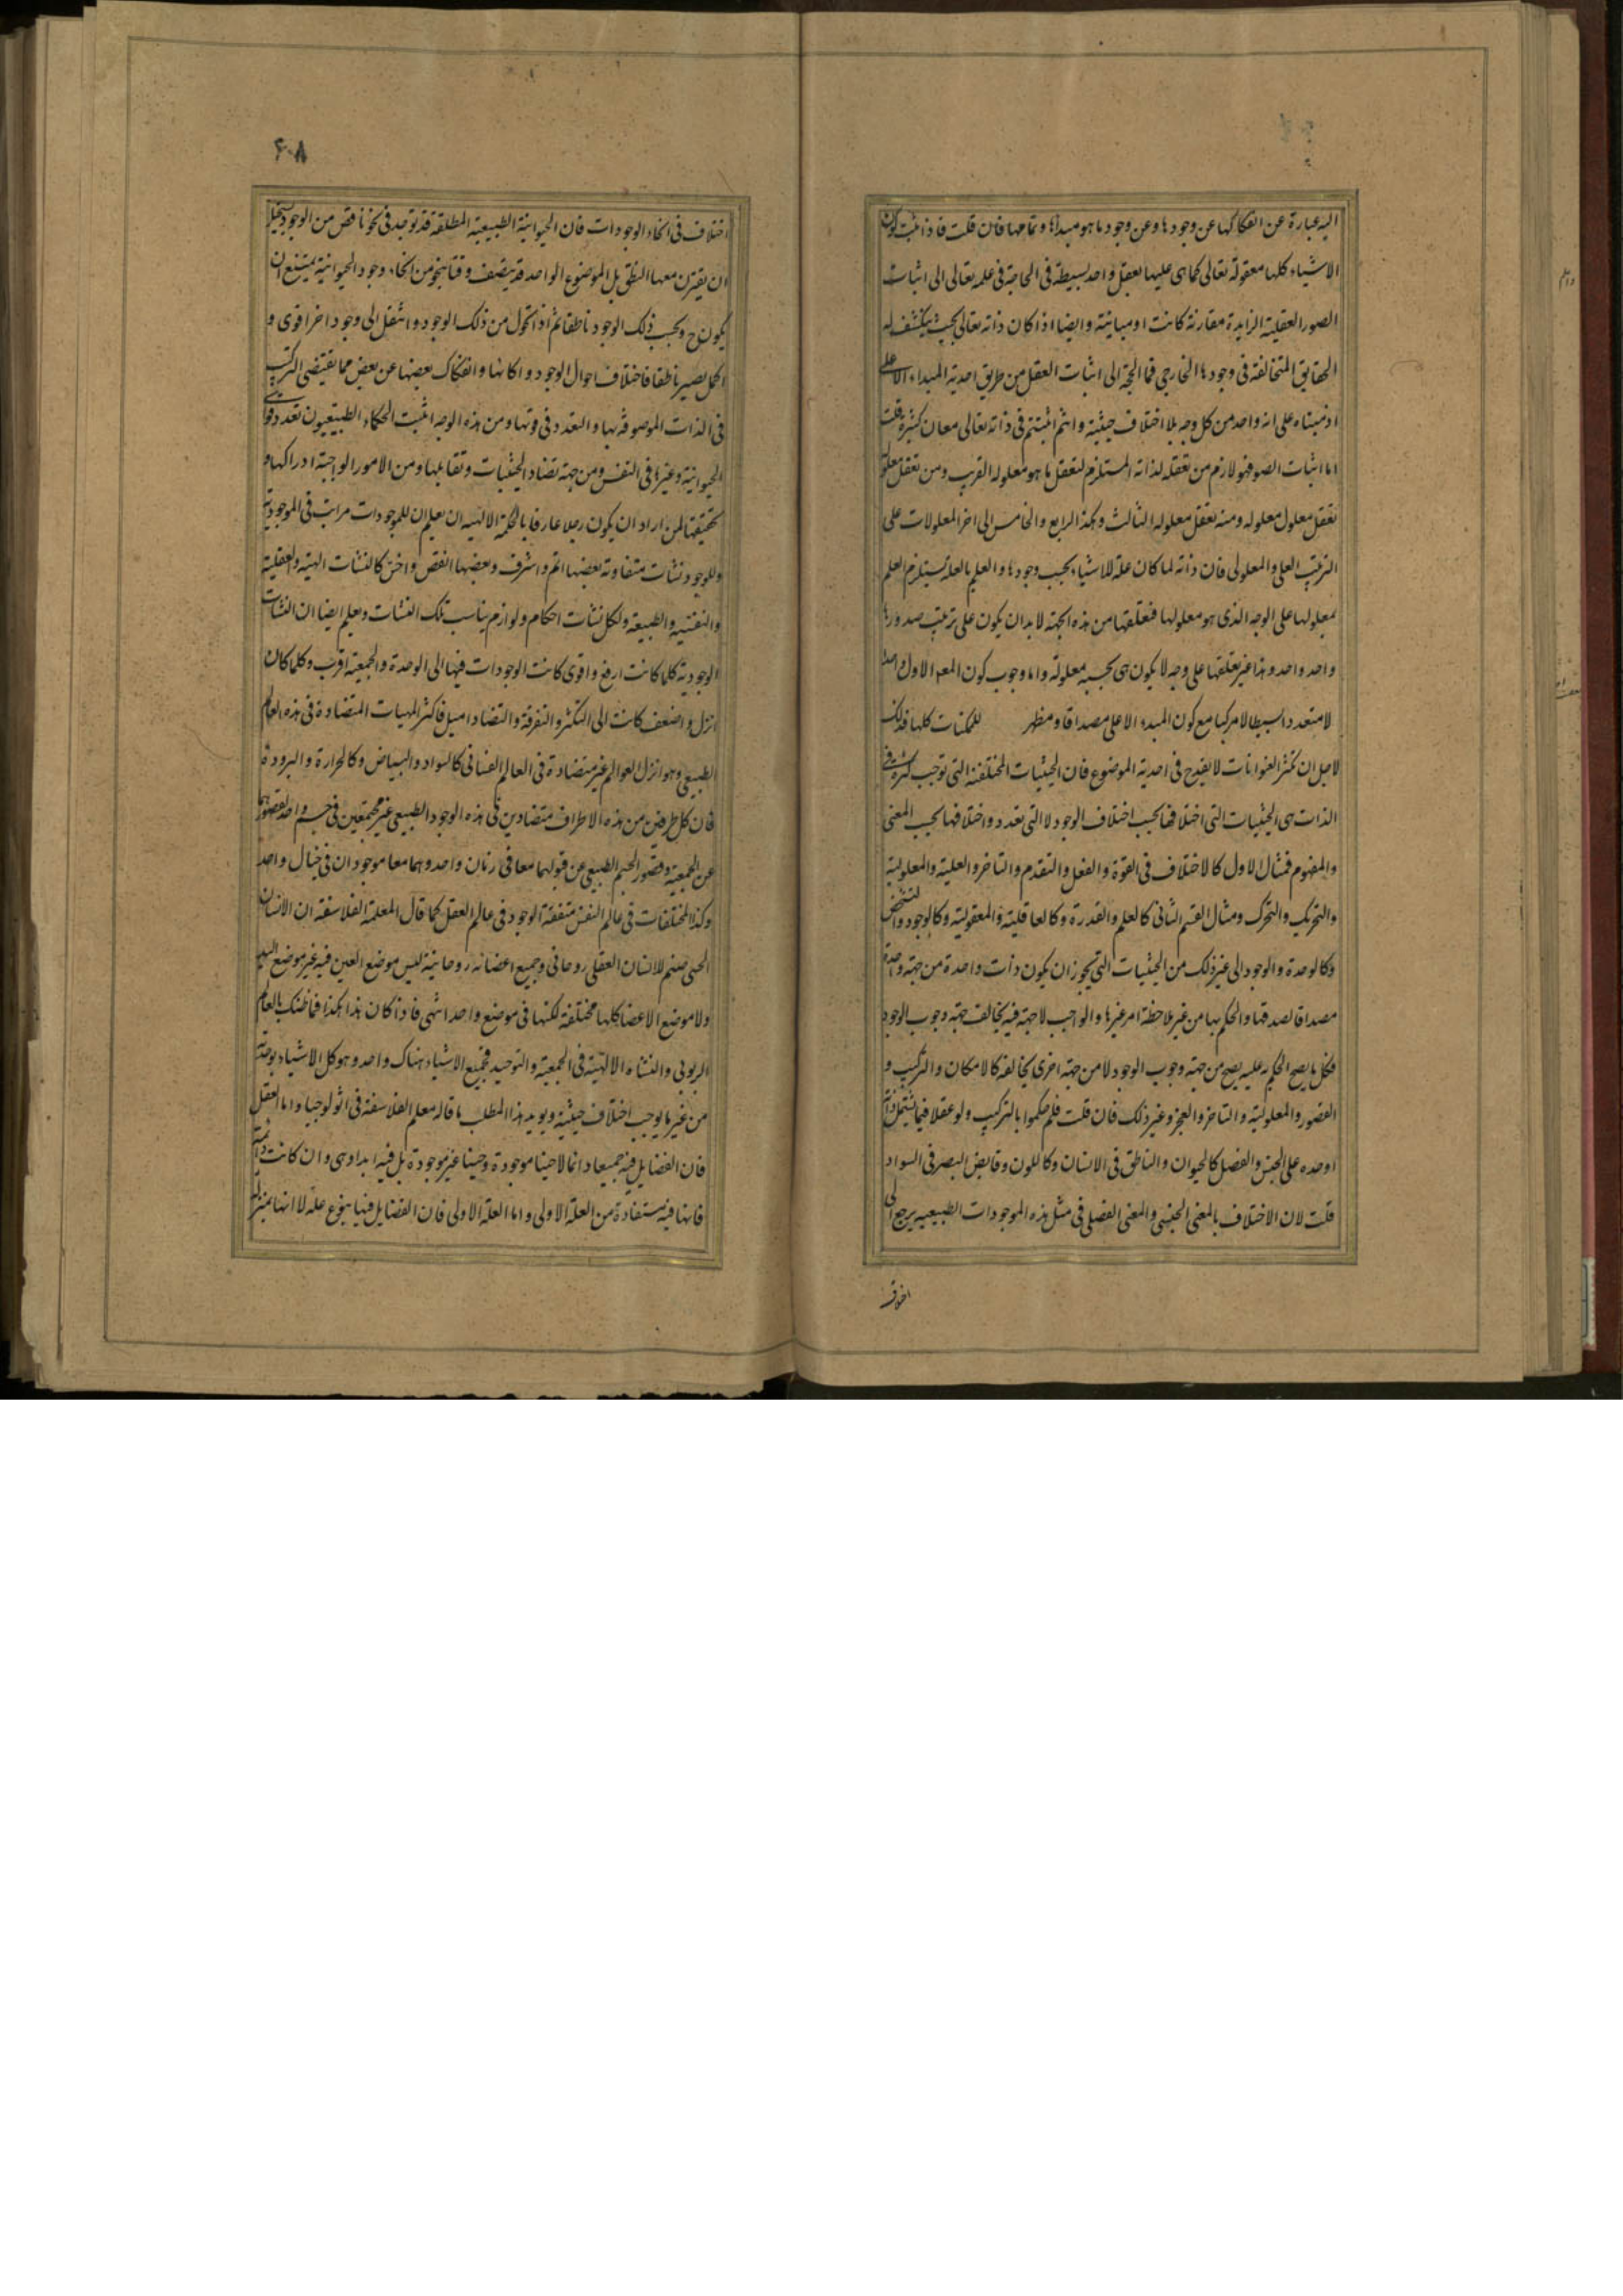 اليه عبارة عن انفكاكها عن وجودها وعن وجود ما هو مبدأها وتمامها فان قلت فاذا ثبت كون
الاشياء كلها معقولة تعالى كما هى عليها بعقل واحد بسيط فى الحاجة فى علمه تعالى الى اثبات
الصور العقلية الزايدة مقارنة كانت او مباينة وايضا اذا كان ذاته تعالى بحيث ينكشف له
الحقايق المتخالفة فى وجودها الخارجى فما الحجة الى اثبات العقل من طريق احدية المبداء الاعلى
اذ مبناه على انه واحد من كل وجه بلا اختلاف حيثية وانتم اثبتتم فى ذاته تعالى معان كثيرة قلت
اما اثبات الصور فهو لازم من تعقله لذاته المستلزم لتعقل ما هو معلوله القريب ومن تعقل معلوله
تعقل معلول معلوله ومنه تعقل معلوله الثالث وهكذا الرابع والخامس الى اخر المعلولات على
الترتيب العلى والمعلولى فان ذاته لما كان علة للاشياء بحسب وجودها والعلم بالعلة يستلزم العلم
بمعلولها على الوجه الذى هو معلولها فتعلقها من هذه الجهة لا بد ان يكون على ترتيب صدورها
واحد واحد وهذا غير تعلقها على وجه لا يكون هى بحسبه معلولة واما وجوب كون المعلول الاول واحدا
لا متعددا بسيطا لا مركبا مع كون المبدء الاعلى مصداقا ومظهر للممكنات كلها فذلك
لاجل ان تكثر العنوانات لا يقدح فى احدية الموضوع فان الحيثيات المختلفة التى توجب كثرة فى
الذات هى الحيثيات التى اختلافها بحسب اختلاف الوجود لا التى تعدد واختلافها بحسب المعنى
والمفهوم فمثال الاول كالاختلاف فى القوة والفعل والتقدم والتاخر والعلية والمعلولية
والتحريك والتحرك ومثال القسم الثانى كالعلم والقدرة وكالعاقلية والمعقولية وكالوجود والتشخص
وكالوحدة والوجود الى غير ذلك من الحيثيات التى يجوز ان يكون ذات واحدة من جهة واحدة
مصداقا لصدقها والحكم بها من غير ملاحظة امر غيرها والواجب لا جهة فيه يخالف جهة وجوب الوجود
فكل ما يصح الحكم به عليه يصح من جهة وجوب الوجود لا من جهة اخرى يخالفه كالامكان والتركيب و
القصور والمعلولية والتاخر والعجز وغير ذلك فان قلت فلم حكموا بالتركيب ولو عقلا فيما يشتمل ذاته
او حده على الجنس والفصل كالحيوان والناطق فى الانسان وكاللون وقابض البصر فى السواد
قلت لان الاختلاف بالمعنى الجنسى والمعنى الفصلى فى مثل هذه الموجودات الطبيعيه يرجع الى
٤٠٨
اختلاف فى انحاء الوجودات فان الحيوانية الطبيعية المطلقة قد توجد فى نحو ناقص من الوجود يستحيل
ان يقترن معها النطق بل الموضوع الواحد قد يتصف وقتا بنحو من انحاء وجود الحيوانية يمتنع ان
يكون ح وبحسب ذلك الوجود ناطقا ثم اذا تحول من ذلك الوجود وانتقل الى وجود اخر اقوى و
اكمل يصير ناطقا فاختلاف احوال الوجود وامكانها وانفكاك بعضها عن بعض مما يقتضى التركيب
فى الذات الموصوفة بها والتعدد فى قوتها ومن هذه الوجه اثبت الحكماء الطبيعيون تعدد قوى
الحيوانية وغيرها فى النفس ومن جهة تضاد الحيثيات وتقابلها ومن الامور الواجبة ادراكها و
تحقيقها لمن اراد ان يكون رجلا عارفا بالحكمة الالهية ان يعلم ان للموجودات مراتب فى الموجودية
وللوجود نشات متفاوتة بعضها اتم واشرف وبعضها انقص واخس كالنشات الهية والعقلية
والنفسية والطبيعة ولكل نشات احكام ولوازم يناسب تلك النشات ويعلم ايضا ان النشات
الوجودية كلما كانت ارفع واقوى كانت الوجودات فيها الى الوحدة والجمعية اقرب وكلما كان
انزل واضعف كانت الى التكثر والتفرقة والتضاد اميل فاكثر المهيات المتضادة فى هذه العالم
الطبيعى وهو انزل العوالم غير متضادة فى العالم النفسانى كالسواد والبياض وكالحرارة والبرودة
فان كل طرفين من هذه الاطراف متضادين فى هذه الوجود الطبيعى غير مجتمعين فى جسم واحد لقصورها
عن الجمعية وقصور الجسم الطبيعى عن قبولهما معا فى زمان واحد وهما معا موجودان فى خيال واحد
وكذا المختلفات فى عالم النفس متفقة الوجود فى عالم العقل كما قال المعلمة الفلاسفة ان الانسان
الحسى صنم للانسان العقلى روحانى وجميع اعضائه روحانية ليس موضع العين فيه غير موضع اليد
ولا موضع الاعضا كلها مختلفة لكنها فى موضع واحد انتهى فاذا كان هذا هكذا فما ظنك بالعالم
الربوبى والنشاه الالهية فى الجمعية والتوحيد فجميع الاشياء هناك واحد وهو كل الاشياء بوحدته
من غير ما يوجب اختلاف حيثية ويويد هذا المطلب ما قاله معلم الفلاسفة فى اثولوجيا واما العقل
فان الفضايل فيه جميعا دائما لا حينا موجودة وحينا غير موجودة بل فيه ابدا وهى وان كانت دائمة
فانها فيه مستفادة من العلة الاولى واما العلة الاولى فان الفضايل فيها بنوع علة لا انها بمنزلة